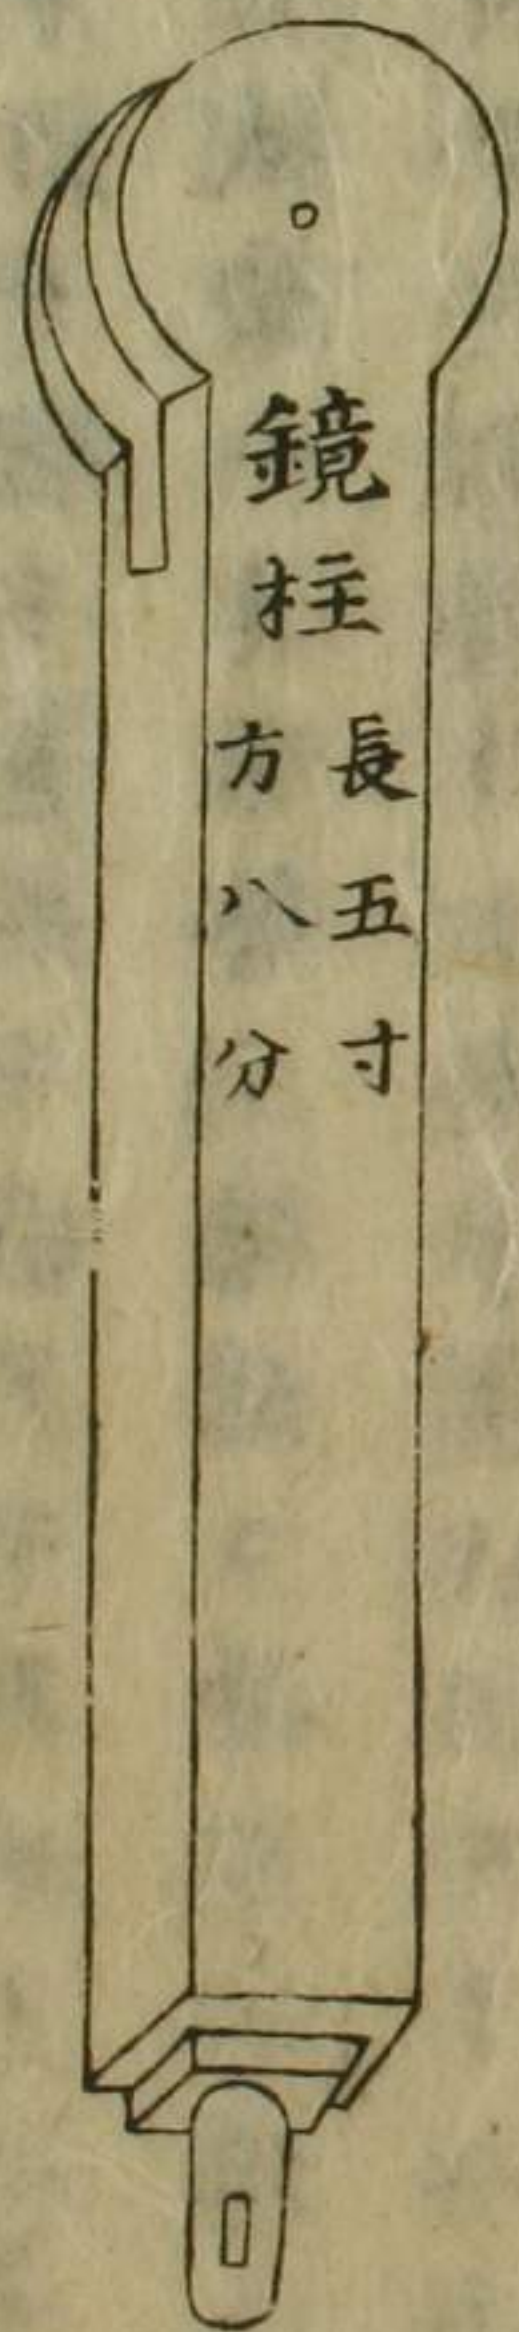 鏡柱
長五寸
方八分